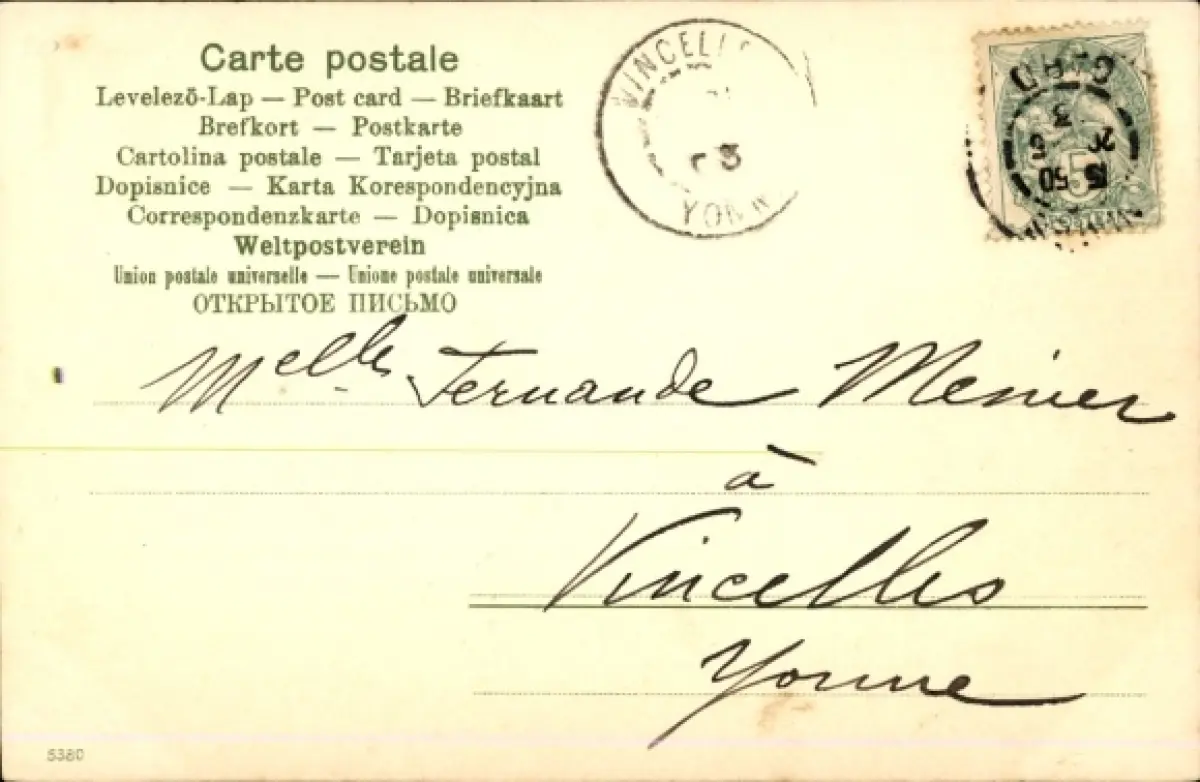 Carte postale
Levelezõ-Lap — Post card — Briefkaart
Brefkort — Postkarte
Cartolina postale — Tarjeta postal
Dopisnice — Karta Korespondencyjna
Correspondenzkarte — Dopisnica
Weltpostverein
Union postale universelle — Unione postale universale
ОТКРЫТОЕ ПИСЬМО
VINCELL
03
YONN
5
50
3
Melle Fernande Mesnier
à
Vincelles
Yonne
5380